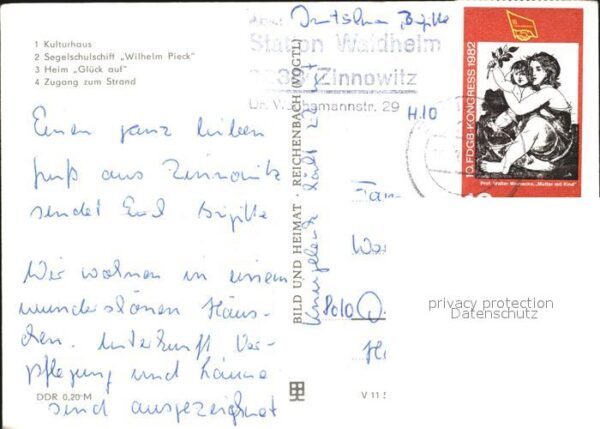 1 Kulturhaus
2 Segelschulschiff „Wilhelm Pieck“
3 Heim „Glück auf“
4 Zugang zum Strand
Einen ganz lieben
Gruß aus Zinnowitz
sendet Euch Brigitte
Wir wohnen in einem
wunderschönen Häus-
chen. Unterkunft Ver-
pflegung und Laune
sind ausgezeichnet
DDR 0,20 M
BILD UND HEIMAT · REICHENBACH (VOGTL)
V 11 5
Brigitte
Station Waldheim
Zinnowitz
mannstr. 29
H.10
10. FDGB-KONGRESS 1982
Prof. Walter Womacka, „Mutter mit Kind“
10
Fam
8010
privacy protection
Datenschutz